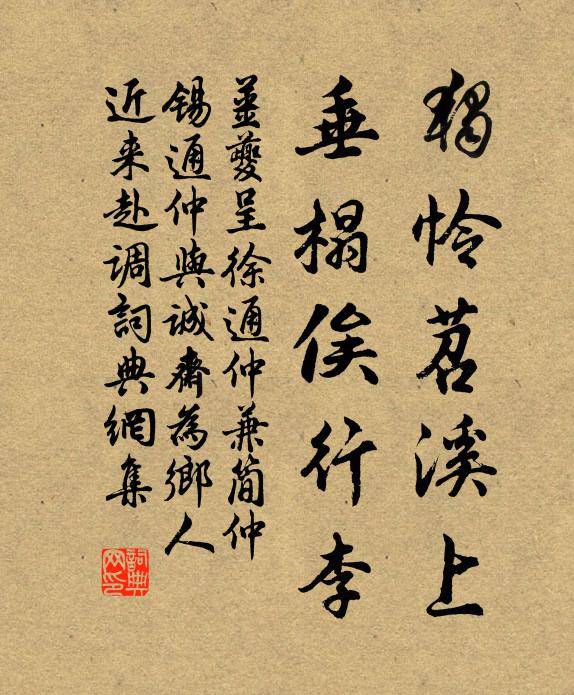 獨怜苕溪上
垂榻俟行李
薑夔呈徐通仲兼簡仲
錫通仲與诚齋為鄉人
近来赴调詞典網集
詞典网印